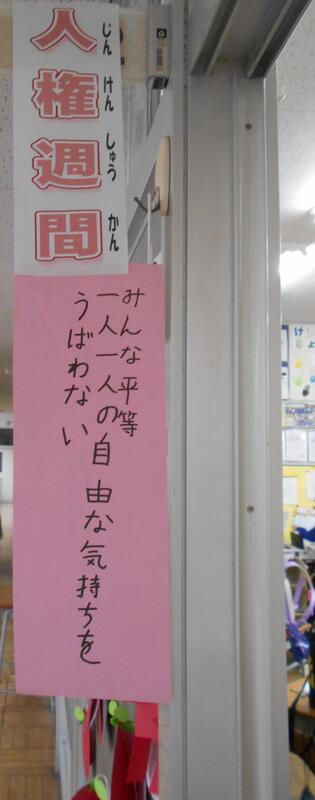 人権週間
じん けん しゅう かん
みんな平等
一人一人の自由な気持ちを
うばわない